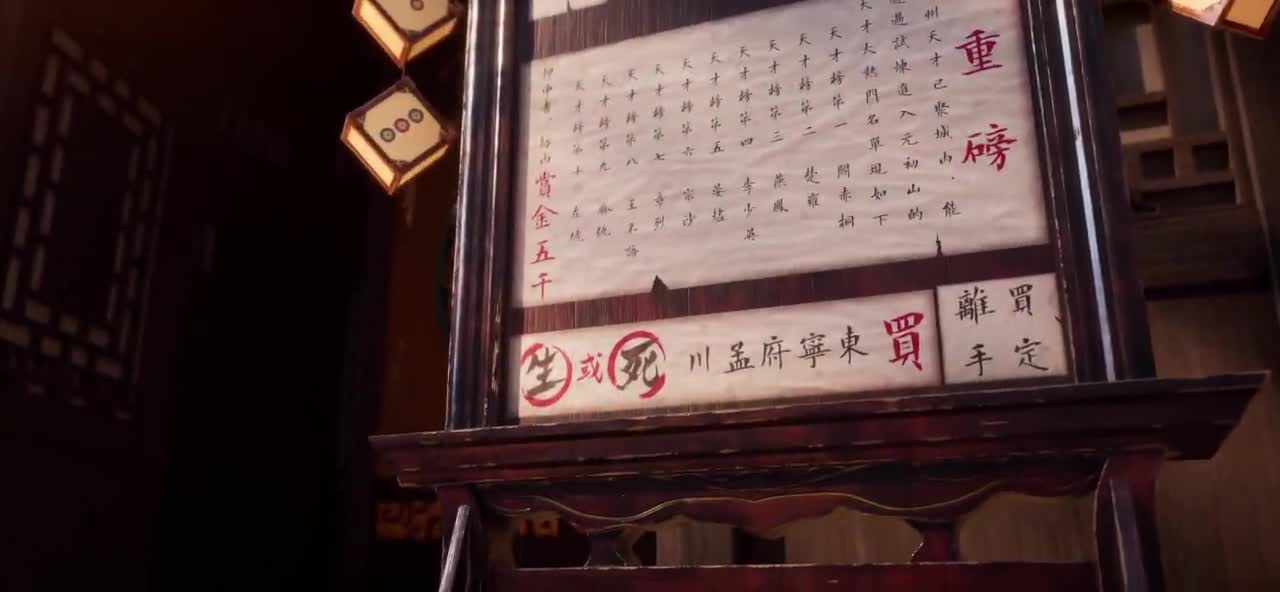 重磅
州天才已聚城內，能
過試煉進入元初山的
天才大熱門名單現如下
天才榜第一 閻赤桐
天才榜第二 楚雍
天才榜第三 燕鳳
天才榜第四 李少英
天才榜第五 晏燼
天才榜第六 宗沙
天才榜第七 章烈
天才榜第八 王不語
天才榜第九 仇
天才榜第十
押中者，賞金五千
買定
離手
買東寧府孟川死或生